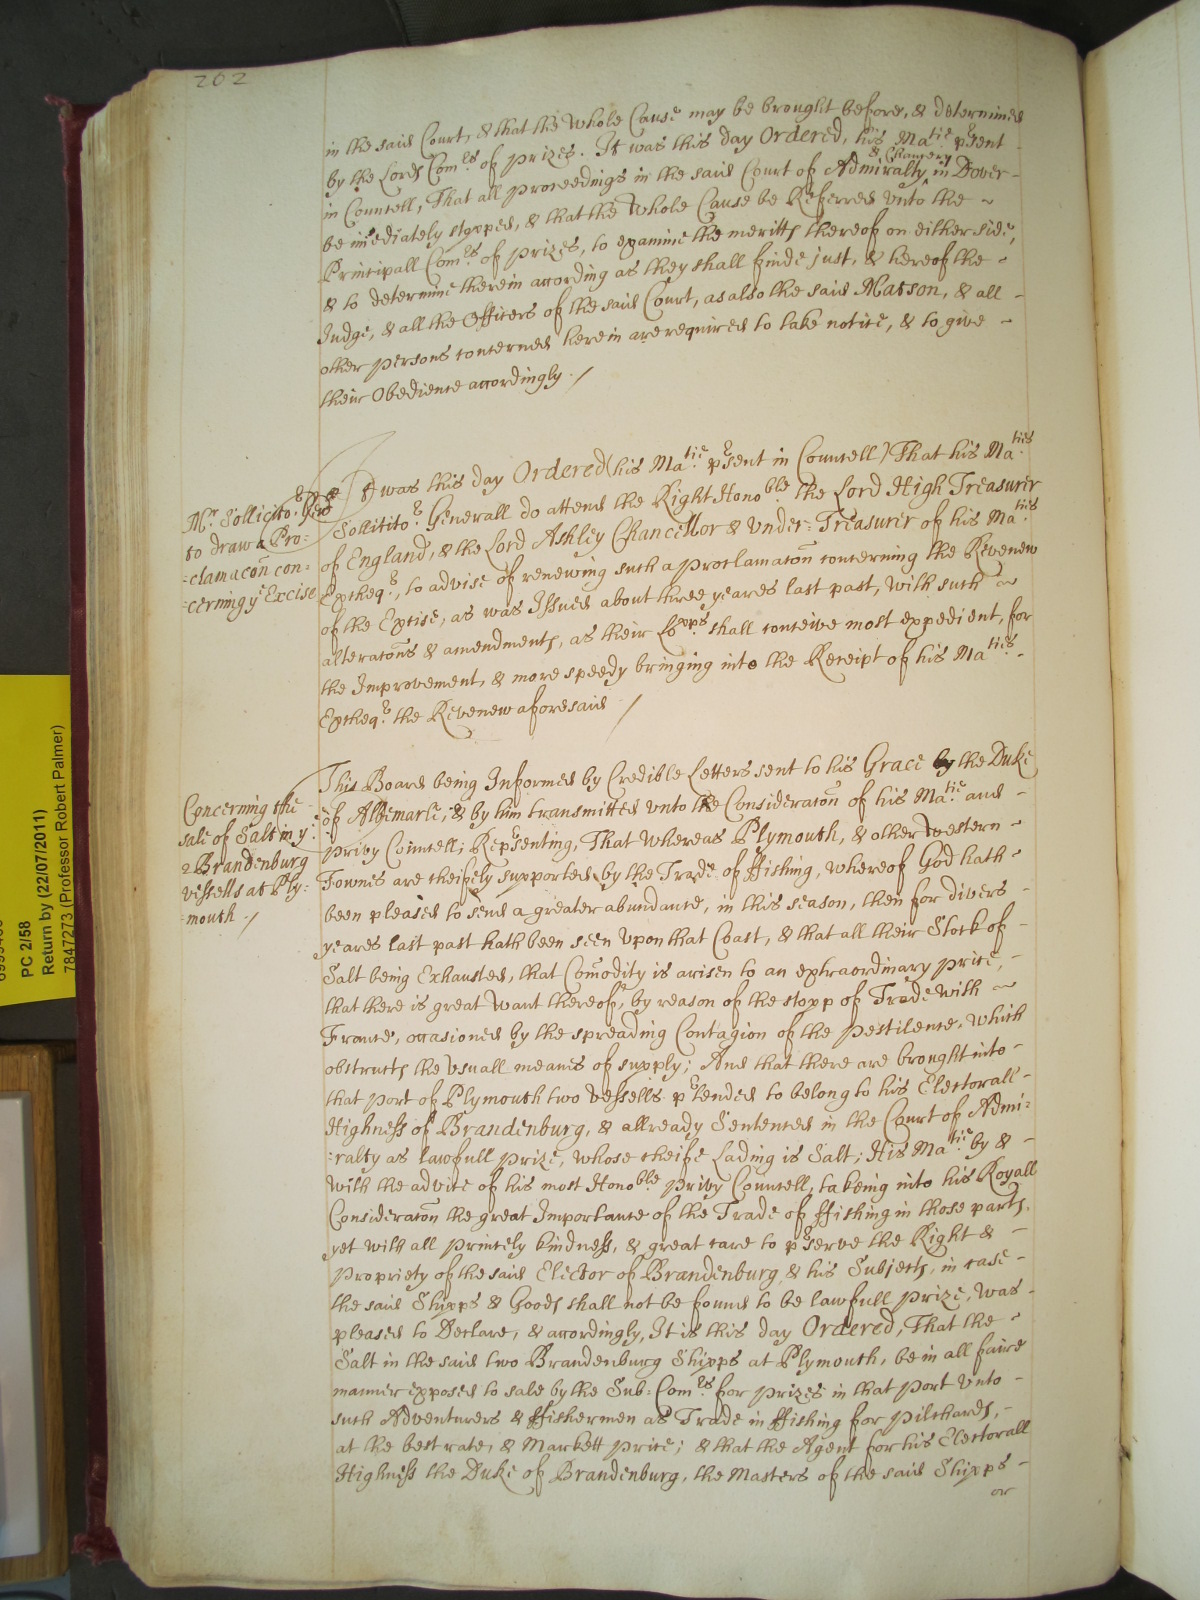 202
in the said Court, & that the Whole Cause may be brought before, & determined
by the Lords Com.rs of prizes. It was this day Ordered, his Ma.tie p'sent
in Councell, That all proceedings in the said Court of Admiralty & Chancery in Dover
be im̄ediately stopped, & that the Whole Cause be Referred unto the ~
Principall Com.rs of prizes, to examine the meritts thereof on either side,
& to determine therein according as they shall finde just, & hereof the -
Judge, & all the Officers of the said Court, as also the said Masson, & all -
other persons concerned herein are required to take notice, & to give -
their Obedience accordingly ./
Mr. Sollicito.r Gen.ll
to draw a Pro:
:clamac̄on con:
:cerning ye Excise
It was this day Ordered (his Ma.tie p'sent in Councell) That his Ma.ties
Sollicito.r Generall do attend the Right Hono.ble the Lord High Treasurer
of England, & the Lord Ashley Chancellor & Under: Treasurer of his Ma.ties
Excheq.r, to advise of renewing such a proclamac̄on concerning the Revenew
of the Excise, as was Issued about three yeares last past, with such ~
alterac̄ons & amendments, as their Lo.pps shall conceive most expedient, for
the Improvement, & more speedy bringing into the Receipt of his Ma.ties -
Excheq.r the Revenew aforesaid /
Concerning the
sale of Salt in ye
2 Brandenburg
vessells at Ply:
:mouth ./
This Board being Informed by Credible Letters sent to his Grace the Duke
of Albemarle, & by him transmitted unto the Considerac̄on of his Ma.tie and -
privy Councell; Rep'senting, That whereas Plymouth, & other Western -
Townes are cheifely supported by the Trade of ffishing, whereof God hath -
been pleased to send a greater abundance, in this season, then for divers -
yeares last past hath been seen upon that Coast, & that all their Stock of -
Salt being Exhausted, that Com̄odity is arisen to an extraordinary price, -
that there is great want thereof, by reason of the stopp of Trade with ~
France, occasioned by the spreading Contagion of the Pestilence, which
obstructs the usuall meanes of supply; And that there are brought into -
that port of Plymouth two vessells p'tended to belong to his Electorall -
Highness of Brandenburg, & allready Sentenced in the Court of Admi:
:ralty as lawfull prize, whose cheife Lading is Salt; His Ma.tie by & -
with the advice of his most Hono.ble privy Councell, takeing into his Royall
Considerac̄on the great Importance of the Trade of ffishing in those parts,
yet with all princely kindness, & great care to p'serve the Right & -
propriety of the said Elector of Brandenburg, & his Subjects, in case -
the said Shipps & Goods shall not be found to be lawfull prize, was -
pleased to Declare, & accordingly, It is this day Ordered, That the -
Salt in the said two Brandenburg Shipps at Plymouth, be in all faire
manner exposed to sale by the Sub: Com.rs for prizes in that port unto -
such Adventurers & ffishermen as Trade in ffishing for pilchards, -
at the best rate, & Markett price; & that the Agent for his Electorall
Highness the Duke of Brandenburg, the Masters of the said Shipps -
or
PC 2/58
Return by (22/07/2011)
7847273 (Professor Robert Palmer)